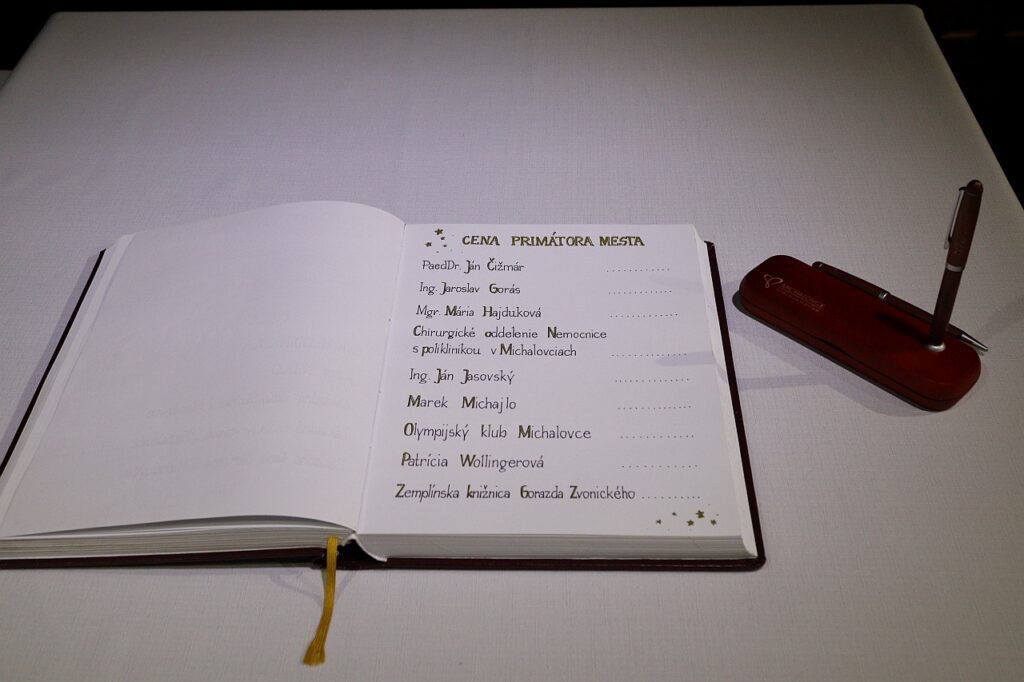 CENA PRIMÁTORA MESTA
PaedDr. Ján Čižmár ............
Ing. Jaroslav Gorás ............
Mgr. Mária Hajduková ............
Chirurgické oddelenie Nemocnice
s poliklinikou v Michalovciach ............
Ing. Ján Jasovský ............
Marek Michajlo ............
Olympijský klub Michalovce ............
Patrícia Wollingerová ............
Zemplínska knižnica Gorazda Zvonického ..........
MICHALOVCE